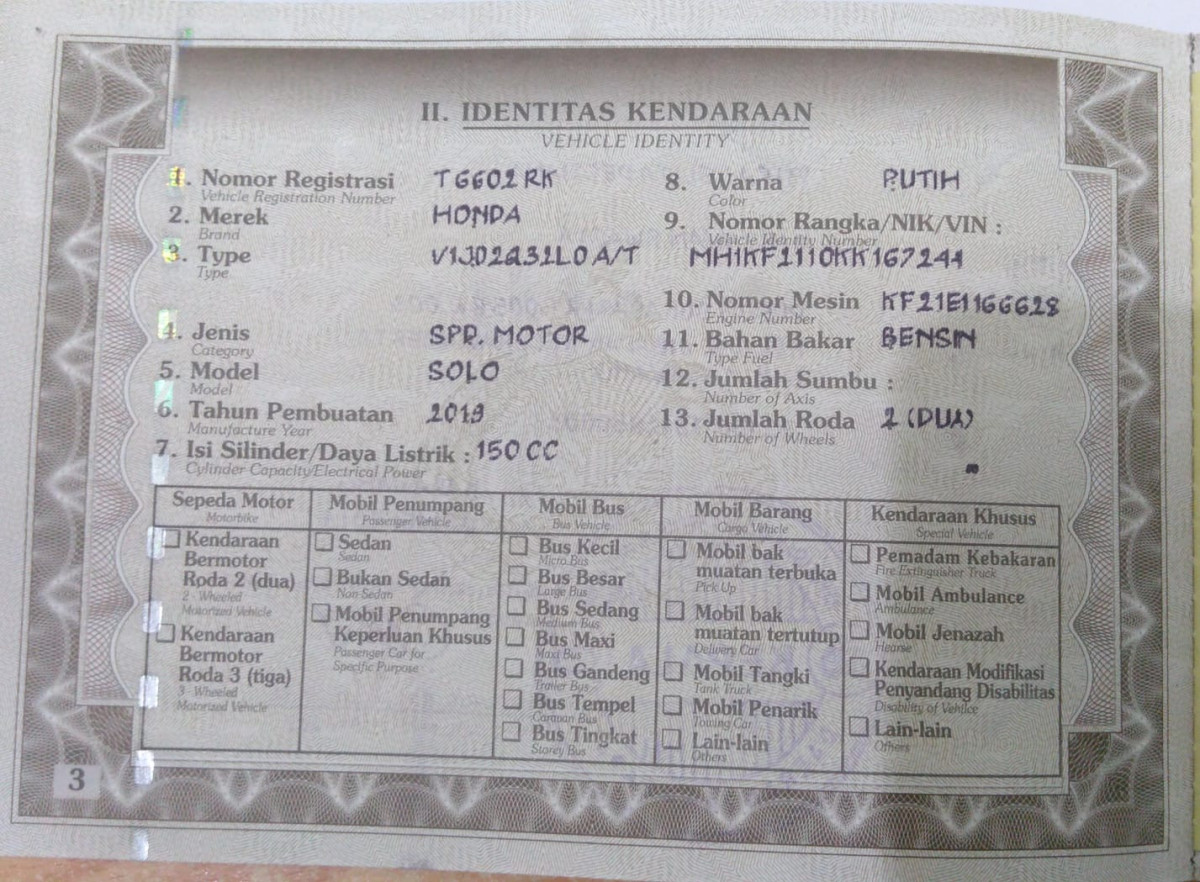 II. IDENTITAS KENDARAAN
VEHICLE IDENTITY
1. Nomor Registrasi T6602RK
Vehicle Registration Number
2. Merek HONDA
Brand
3. Type V1J02Q32L0 A/T
Type
4. Jenis SPD. MOTOR
Category
5. Model SOLO
Model
6. Tahun Pembuatan 2019
Manufacture Year
7. Isi Silinder/Daya Listrik : 150 CC
Cylinder Capacity/Electrical Power
8. Warna PUTIH
Color
9. Nomor Rangka/NIK/VIN :
Vehicle Identity Number
MH1KF2110KK167244
10. Nomor Mesin KF21E1166628
Engine Number
11. Bahan Bakar BENSIN
Type Fuel
12. Jumlah Sumbu :
Number of Axis
13. Jumlah Roda 2 (DUA)
Number of Wheels
Sepeda Motor
Motorbike
Kendaraan
Bermotor
Roda 2 (dua)
2 - Wheeled
Motorized Vehicle
Kendaraan
Bermotor
Roda 3 (tiga)
3 - Wheeled
Motorized Vehicle
Mobil Penumpang
Passenger Vehicle
Sedan
Sedan
Bukan Sedan
Non Sedan
Mobil Penumpang
Keperluan Khusus
Passenger Car for
Specific Purpose
Mobil Bus
Bus Vehicle
Bus Kecil
Micro Bus
Bus Besar
Large Bus
Bus Sedang
Medium Bus
Bus Maxi
Maxi Bus
Bus Gandeng
Trailer Bus
Bus Tempel
Caravan Bus
Bus Tingkat
Storey Bus
Mobil Barang
Cargo Vehicle
Mobil bak
muatan terbuka
Pick Up
Mobil bak
muatan tertutup
Delivery Car
Mobil Tangki
Tank Truck
Mobil Penarik
Towing Car
Lain-lain
Others
Kendaraan Khusus
Special Vehicle
Pemadam Kebakaran
Fire Extinguisher Truck
Mobil Ambulance
Ambulance
Mobil Jenazah
Hearse
Kendaraan Modifikasi
Penyandang Disabilitas
Disability of Vehilce
Lain-lain
Others
3